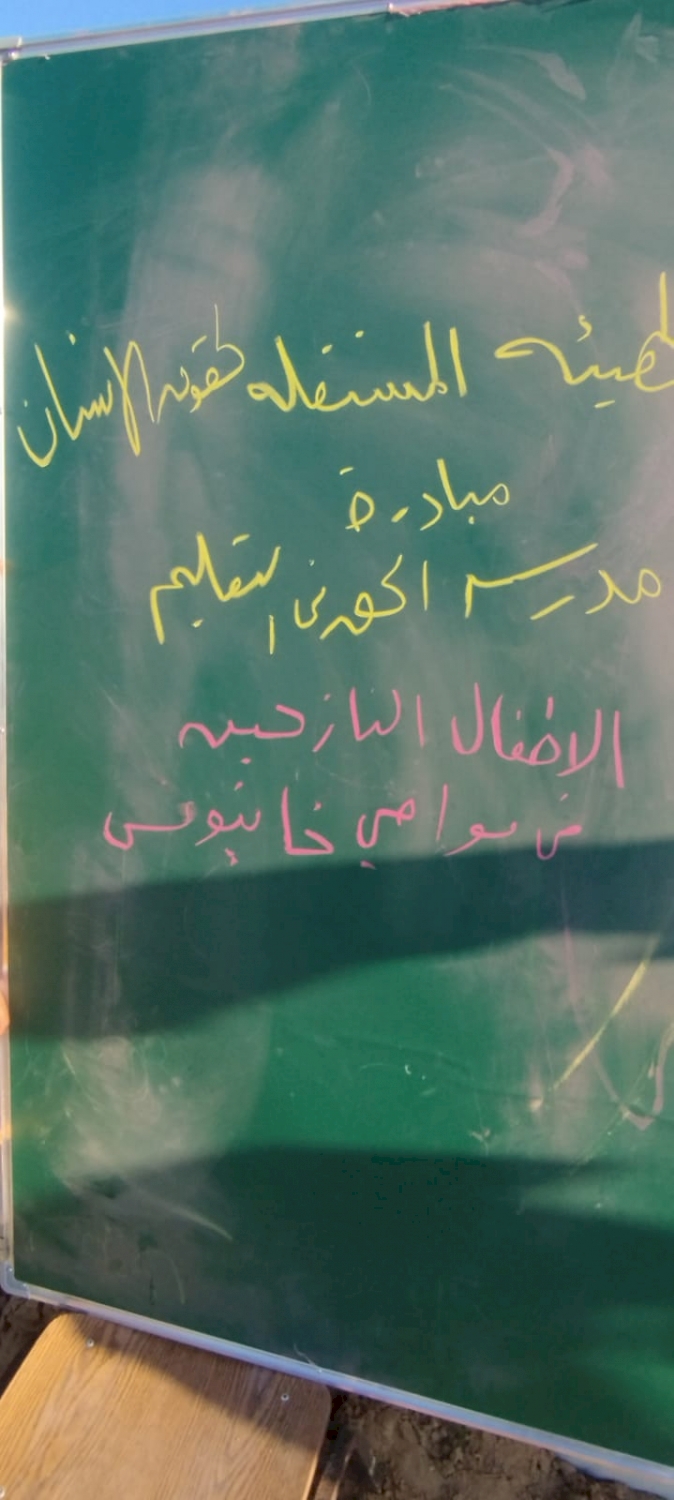 الهيئه المستقله لحقوق الانسان
مبادرة
مدرسه التعليم
الاطفال النازحين
في مواصي خانيونس